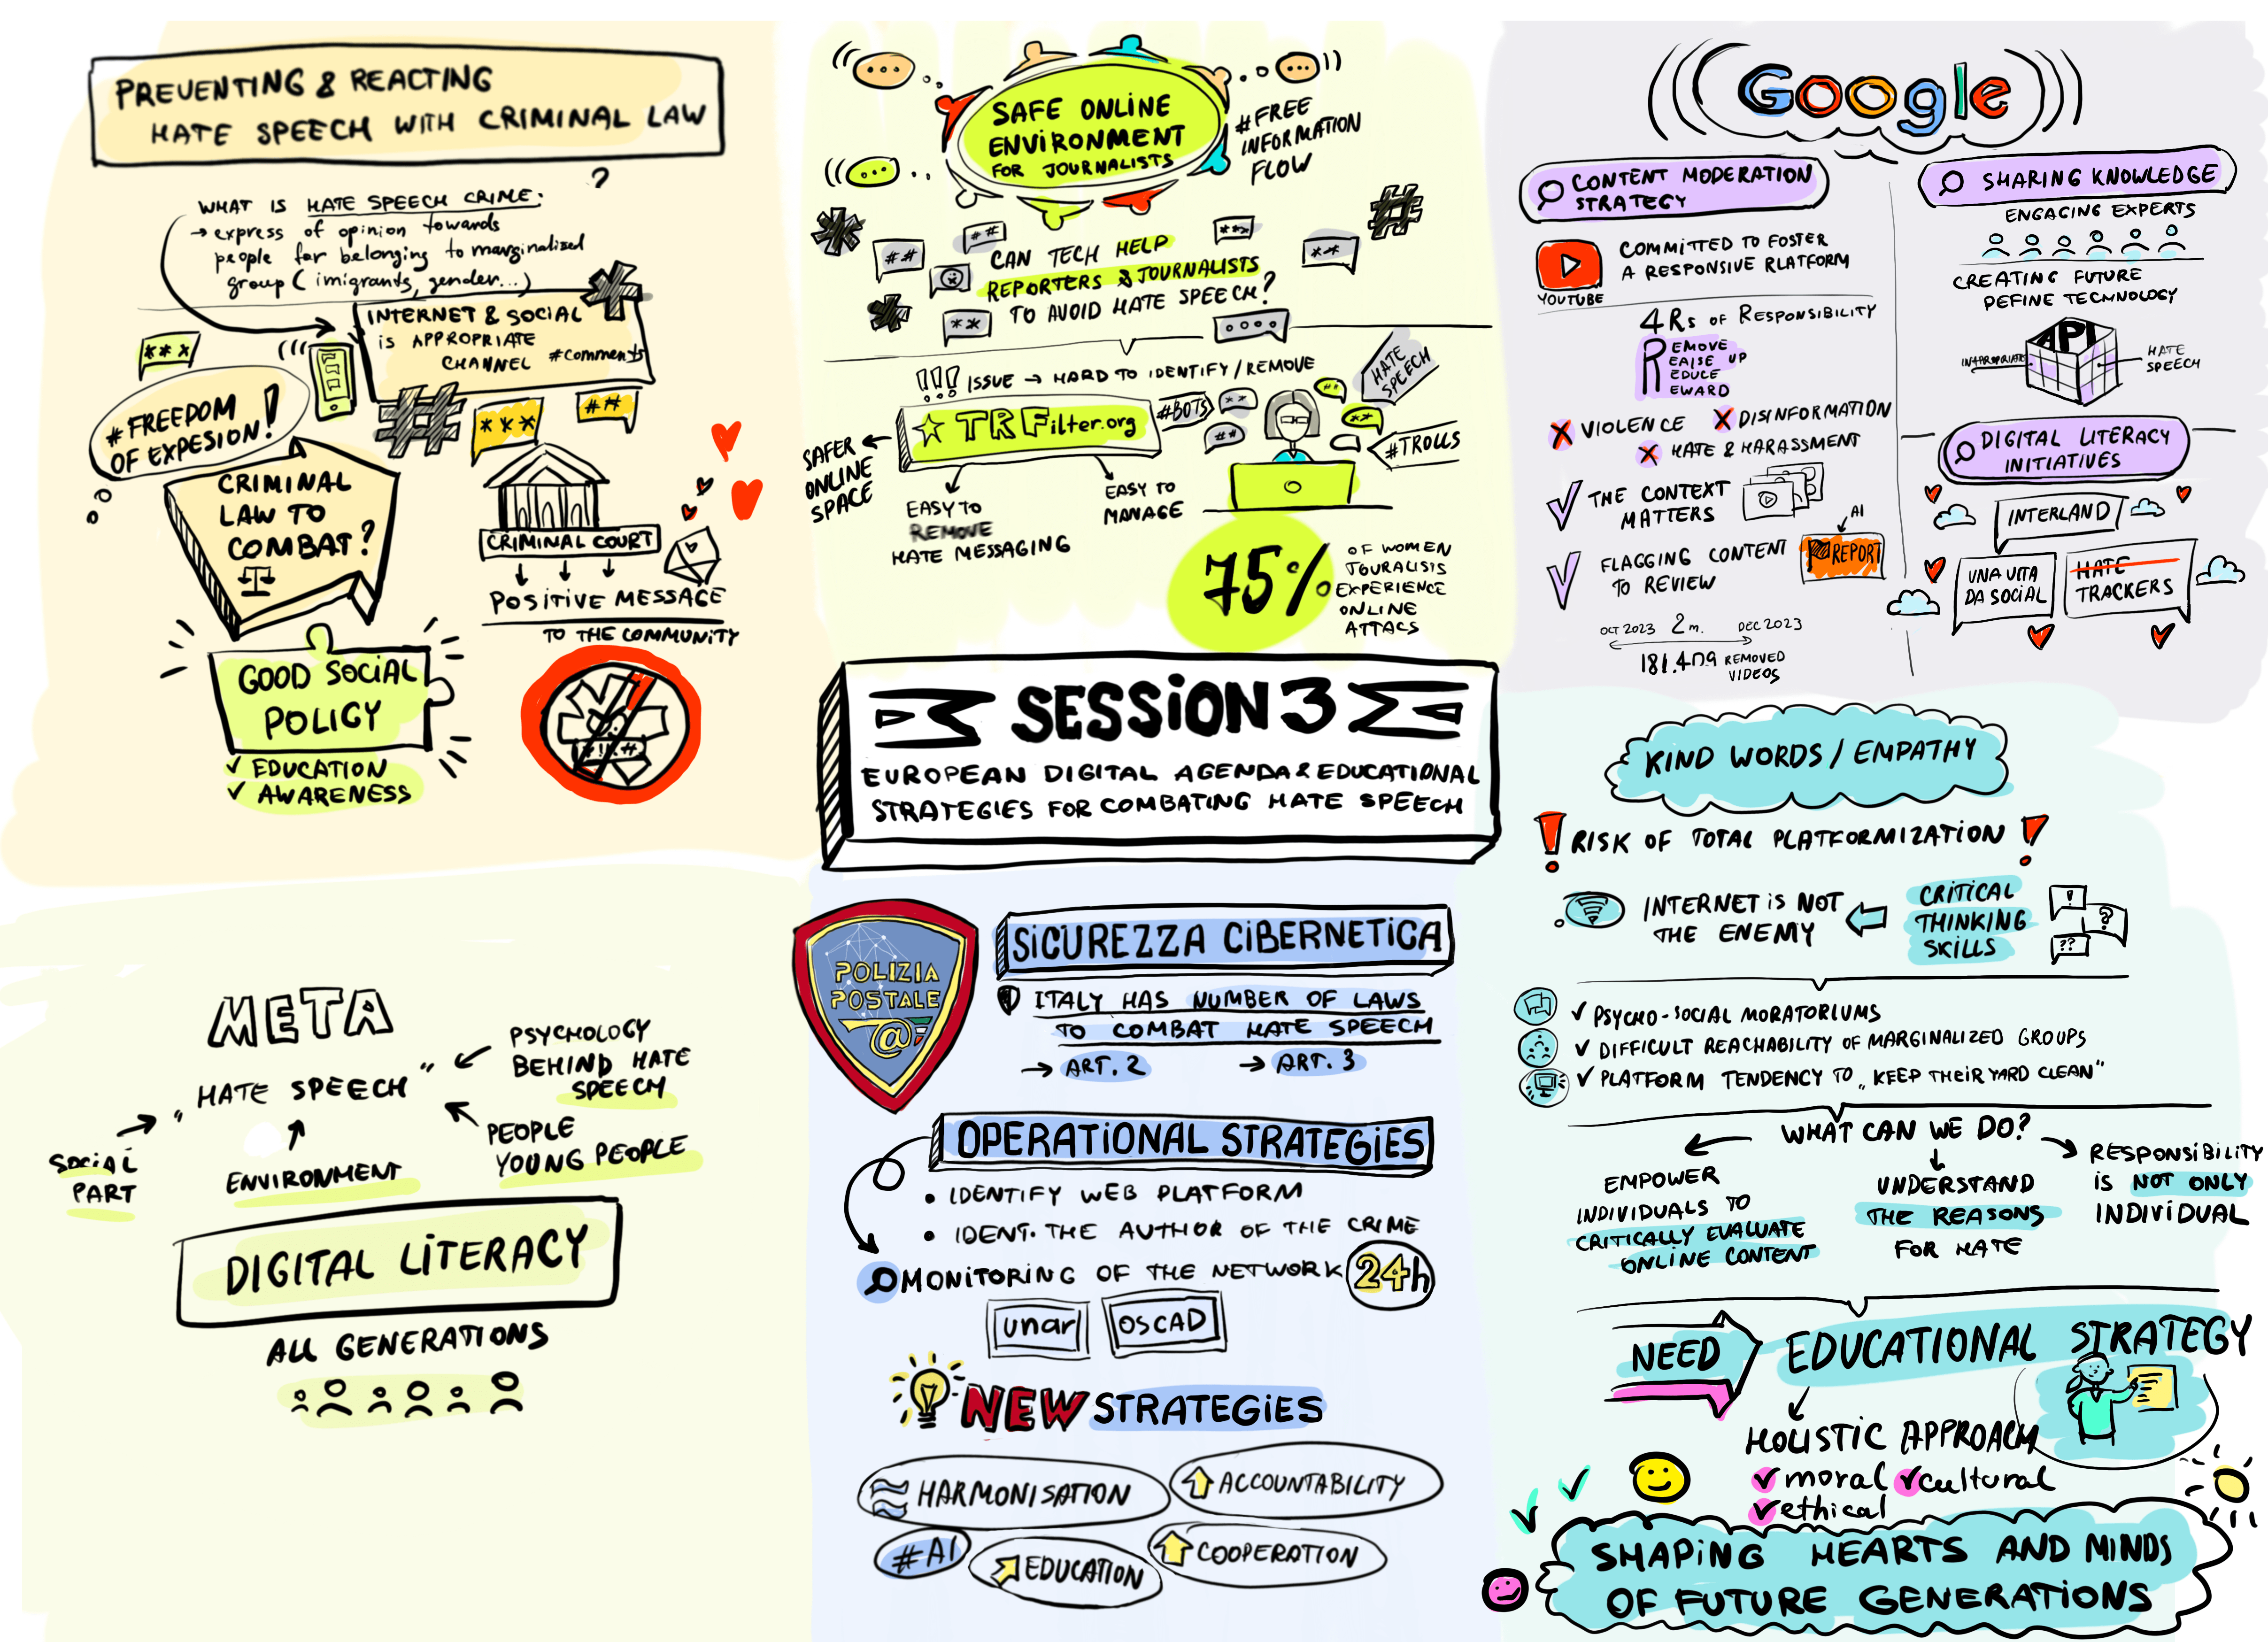 PREVENTING & REACTING
HATE SPEECH WITH CRIMINAL LAW
?
WHAT IS HATE SPEECH CRIME:
→ express of opinion towards
people for belonging to marginalized
group (imigrants, gender...)
INTERNET & SOCIAL
IS APPROPRIATE
CHANNEL #comments
***
#FREEDOM
OF EXPESION!
#
***
##
CRIMINAL
LAW TO
COMBAT?
CRIMINAL COURT
POSITIVE MESSAGE
TO THE COMMUNITY
GOOD SOCIAL
POLICY
✓ EDUCATION
✓ AWARENESS
#!!.#
SAFE ONLINE
ENVIRONMENT
FOR JOURNALISTS
#FREE
INFORMATION
FLOW
CAN TECH HELP
REPORTERS & JOURNALISTS
TO AVOID HATE SPEECH?
!!! ISSUE → HARD TO IDENTIFY/REMOVE
TRFilter.org
#BOTS
HATE
SPEECH
#TROLLS
SAFER
ONLINE
SPACE
EASY TO
REMOVE
HATE MESSAGING
EASY TO
MANAGE
75%
OF WOMEN
JOURALISIS
EXPERIENCE
ONLINE
ATTACS
Google
CONTENT MODERATION
STRATEGY
YOUTUBE
COMMITTED TO FOSTER
A RESPONSIVE RLATFORM
4Rs OF RESPONSIBILITY
REMOVE
RAISE UP
REDUCE
REWARD
X VIOLENCE X DISINFORMATION
X HATE & HARASSMENT
✓ THE CONTEXT
MATTERS
✓ FLAGGING CONTENT
TO REVIEW
AI
REPORT
OCT 2023 2m. DEC 2023
REMOVED
VIDEOS
SHARING KNOWLEDGE
ENGAGING EXPERTS
CREATING FUTURE
DEFINE TECHNOLOGY
API
HATE
SPEECH
DIGITAL LITERACY
INITIATIVES
INTERLAND
UNA VITA
DA SOCIAL
HATE
TRACKERS
SESSION 3
EUROPEAN DIGITAL AGENDA & EDUCATIONAL
STRATEGIES FOR COMBATING HATE SPEECH
META
"HATE SPEECH"
PSYCHOLOGY
BEHIND HATE
SPEECH
SOCIAL
PART
ENVIRONMENT
PEOPLE
YOUNG PEOPLE
DIGITAL LITERACY
ALL GENERATIONS
POLIZIA
POSTALE
@
SICUREZZA CIBERNETICA
ITALY HAS NUMBER OF LAWS
TO COMBAT HATE SPEECH
→ ART. 2 → ART. 3
OPERATIONAL STRATEGIES
• IDENTIFY WEB PLATFORM
• IDENT. THE AUTHOR OF THE CRIME
MONITORING OF THE NETWORK 24h
unar OSCAD
NEW STRATEGIES
HARMONISATION
ACCOUNTABILITY
#AI
EDUCATION
COOPERATION
KIND WORDS / EMPATHY
! RISK OF TOTAL PLATFORMIZATION !
INTERNET IS NOT
THE ENEMY
CRITICAL
THINKING
SKILLS
!
?
??
✓ PSYCHO-SOCIAL MORATORIUMS
✓ DIFFICULT REACHABILITY OF MARGINALIZED GROUPS
✓ PLATFORM TENDENCY TO „KEEP THEIR YARD CLEAN"
WHAT CAN WE DO?
EMPOWER
INDIVIDUALS TO
CRITICALLY EVALUATE
ONLINE CONTENT
UNDERSTAND
THE REASONS
FOR HATE
RESPONSIBILITY
IS NOT ONLY
INDIVIDUAL
NEED
EDUCATIONAL STRATEGY
HOLISTIC APPROACH
✓ moral ✓ cultural
✓ ethical
SHAPING HEARTS AND MINDS
OF FUTURE GENERATIONS